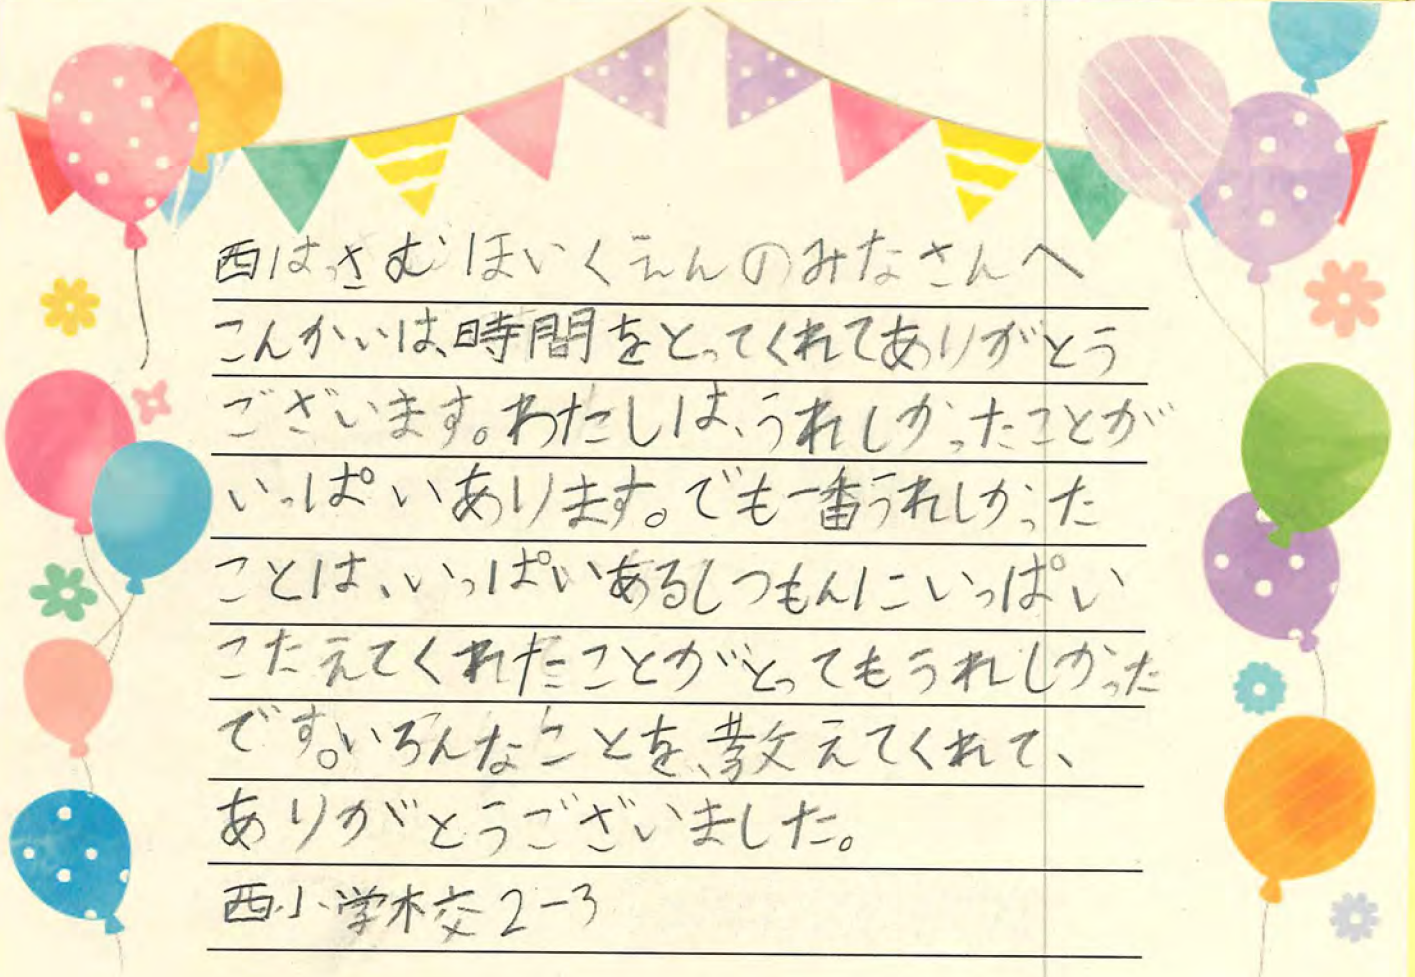 西はっさむほいくえんのみなさんへ
こんかいは、時間をとってくれてありがとう
ございます。わたしは、うれしかったことが
いっぱいあります。でも一番うれしかった
ことは、いっぱいあるしつもんにいっぱい
こたえてくれたことがとってもうれしかった
です。いろんなことを、教えてくれて、
ありがとうございました。
西小学校2-3